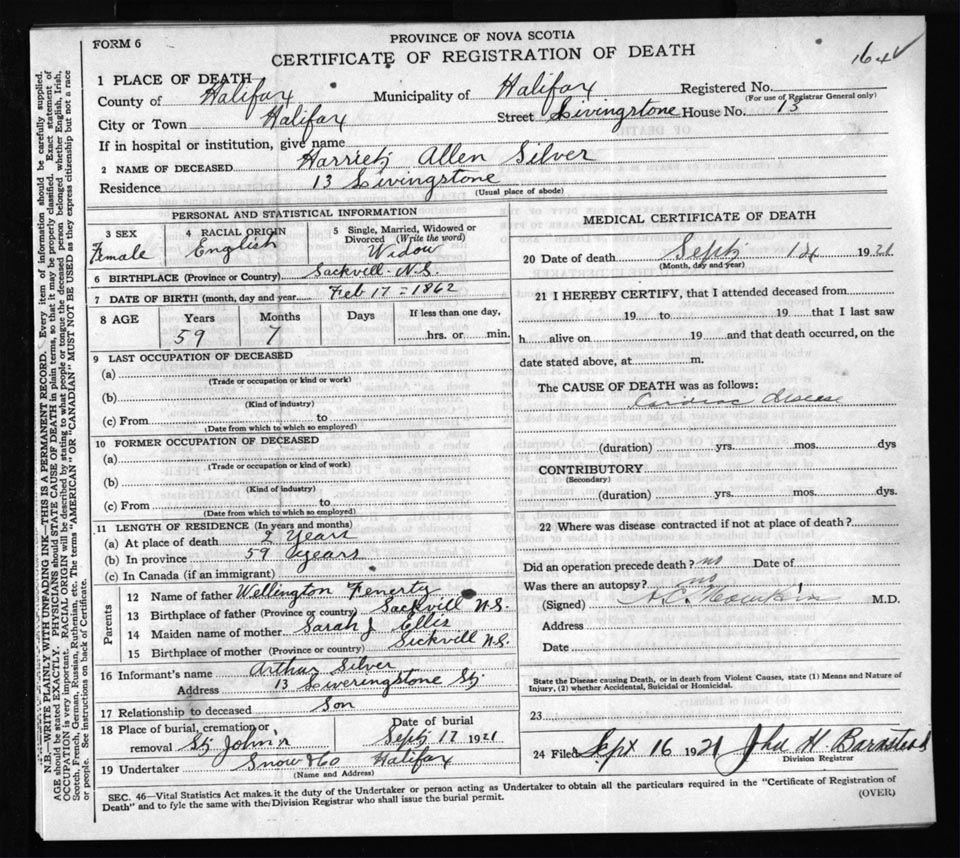 FORM 6
PROVINCE OF NOVA SCOTIA
CERTIFICATE OF REGISTRATION OF DEATH
164
1 PLACE OF DEATH
County of Halifax Municipality of Halifax Registered No.
(For use of Registrar General only)
City or Town Halifax Street Livingstone House No. 13
If in hospital or institution, give name
2 NAME OF DECEASED Harriet Allen Silver
Residence 13 Livingstone
(Usual place of abode)
PERSONAL AND STATISTICAL INFORMATION
3 SEX 4 RACIAL ORIGIN 5 Single, Married, Widowed or Divorced (Write the word)
Female English Widow
6 BIRTHPLACE (Province or Country) Sackvill N.S.
7 DATE OF BIRTH (month, day and year) Feb 17 = 1862
8 AGE Years Months Days If less than one day,
59 7 hrs. or min.
9 LAST OCCUPATION OF DECEASED
(a)
(Trade or occupation or kind or work)
(b)
(Kind of industry)
(c) From to
(Date from which to which so employed)
10 FORMER OCCUPATION OF DECEASED
(a)
(Trade or occupation or kind of work)
(b)
(Kind of industry)
(c) From to
(Date from which to which so employed)
11 LENGTH OF RESIDENCE (In years and months)
(a) At place of death 2 Years
(b) In province 59 years
(c) In Canada (if an immigrant)
Parents
12 Name of father Wellington Fenerty
13 Birthplace of father (Province or country) Sackvill N.S.
14 Maiden name of mother Sarah J Ellis
15 Birthplace of mother (Province or country) Sickvill N.S.
16 Informant's name Arthur Silver
Address 13 Liveringstone St
17 Relationship to deceased Son
18 Place of burial, cremation or removal St John's Date of burial Sept 17 1921
19 Undertaker Snow & Co Halifax
(Name and Address)
MEDICAL CERTIFICATE OF DEATH
20 Date of death Sept 14 1921
(Month, day and year)
21 I HEREBY CERTIFY, that I attended deceased from
19 to 19 that I last saw
h alive on 19 and that death occurred, on the
date stated above, at m.
The CAUSE OF DEATH was as follows:
Cardiac disease
(duration) yrs. mos. dys
CONTRIBUTORY
(Secondary)
(duration) yrs. mos. dys.
22 Where was disease contracted if not at place of death?
Did an operation precede death? no Date of
Was there an autopsy? no
(Signed) M.D.
Address
Date
State the Disease causing Death, or in death from Violent Causes, state (1) Means and Nature of
Injury, (2) whether Accidental, Suicidal or Homicidal.
23
24 Filed Sept 16 1921 John H. Barnstead
Division Registrar
SEC. 46—Vital Statistics Act makes it the duty of the Undertaker or person acting as Undertaker to obtain all the particulars required in the "Certificate of Registration of
Death" and to fyle the same with the Division Registrar who shall issue the burial permit.
(OVER)
N.B.—WRITE PLAINLY WITH UNFADING INK—THIS IS A PERMANENT RECORD. Every item of information should be carefully supplied.
AGE should be stated EXACTLY. PHYSICIANS should STATE CAUSE OF DEATH in plain terms, so that it may be properly classified. Exact statement of
OCCUPATION is very important. RACIAL ORIGIN will be described by stating to what people or tongue the deceased person belonged whether English, Irish,
Scotch, French, German, Russian, Ruthenian, etc. The terms "AMERICAN" OR "CANADIAN" MUST NOT BE USED as they express citizenship but not a race
or people. See instructions on back of Certificate.